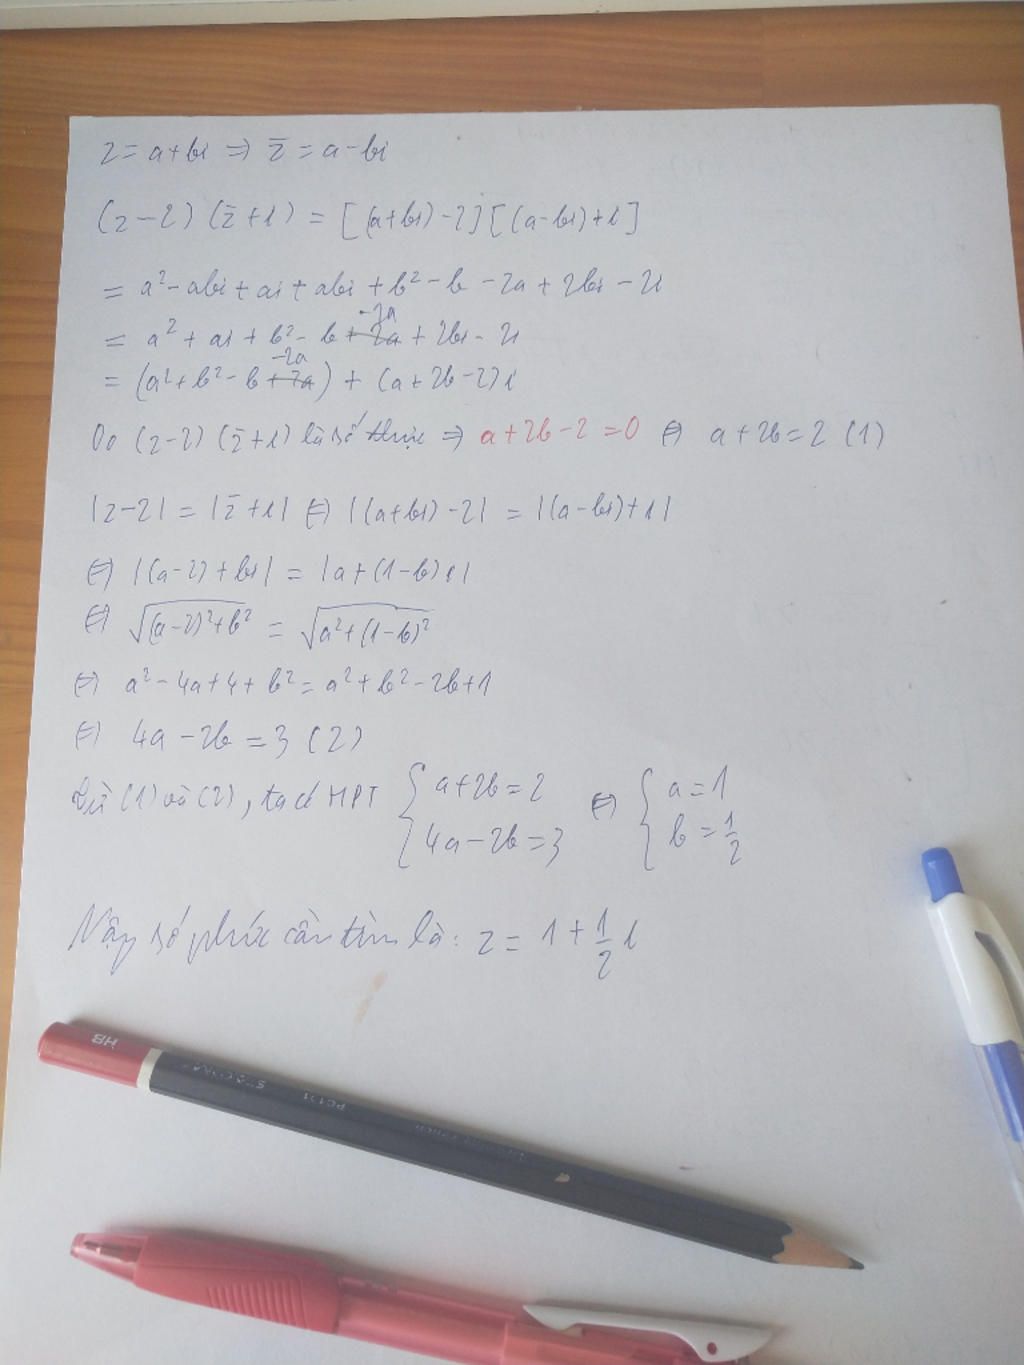 z = a+bi ⇒ z̄ = a-bi
(z-2)(z̄+i) = [(a+bi)-2][(a-bi)+i]
= a² - abi + ai + abi + b² - b - 2a + 2bi - 2i
= a² + ai + b² - b -2a + 2bi - 2i
= (a² + b² - b -2a) + (a + 2b - 2)i
Do (z-2)(z̄+i) là số thực ⇒ a+2b-2=0 ⇔ a+2b=2 (1)
|z-2| = |z̄+i| ⇔ |(a+bi)-2| = |(a-bi)+i|
⇔ |(a-2)+bi| = |a+(1-b)i|
⇔ √((a-2)²+b²) = √(a²+(1-b)²)
⇔ a²-4a+4+b² = a²+b²-2b+1
⇔ 4a-2b=3 (2)
Từ (1) và (2), ta có HPT { a+2b=2 ; 4a-2b=3 ⇔ { a=1 ; b=1/2
Vậy số phức cần tìm là: z = 1+1/2 i
HB